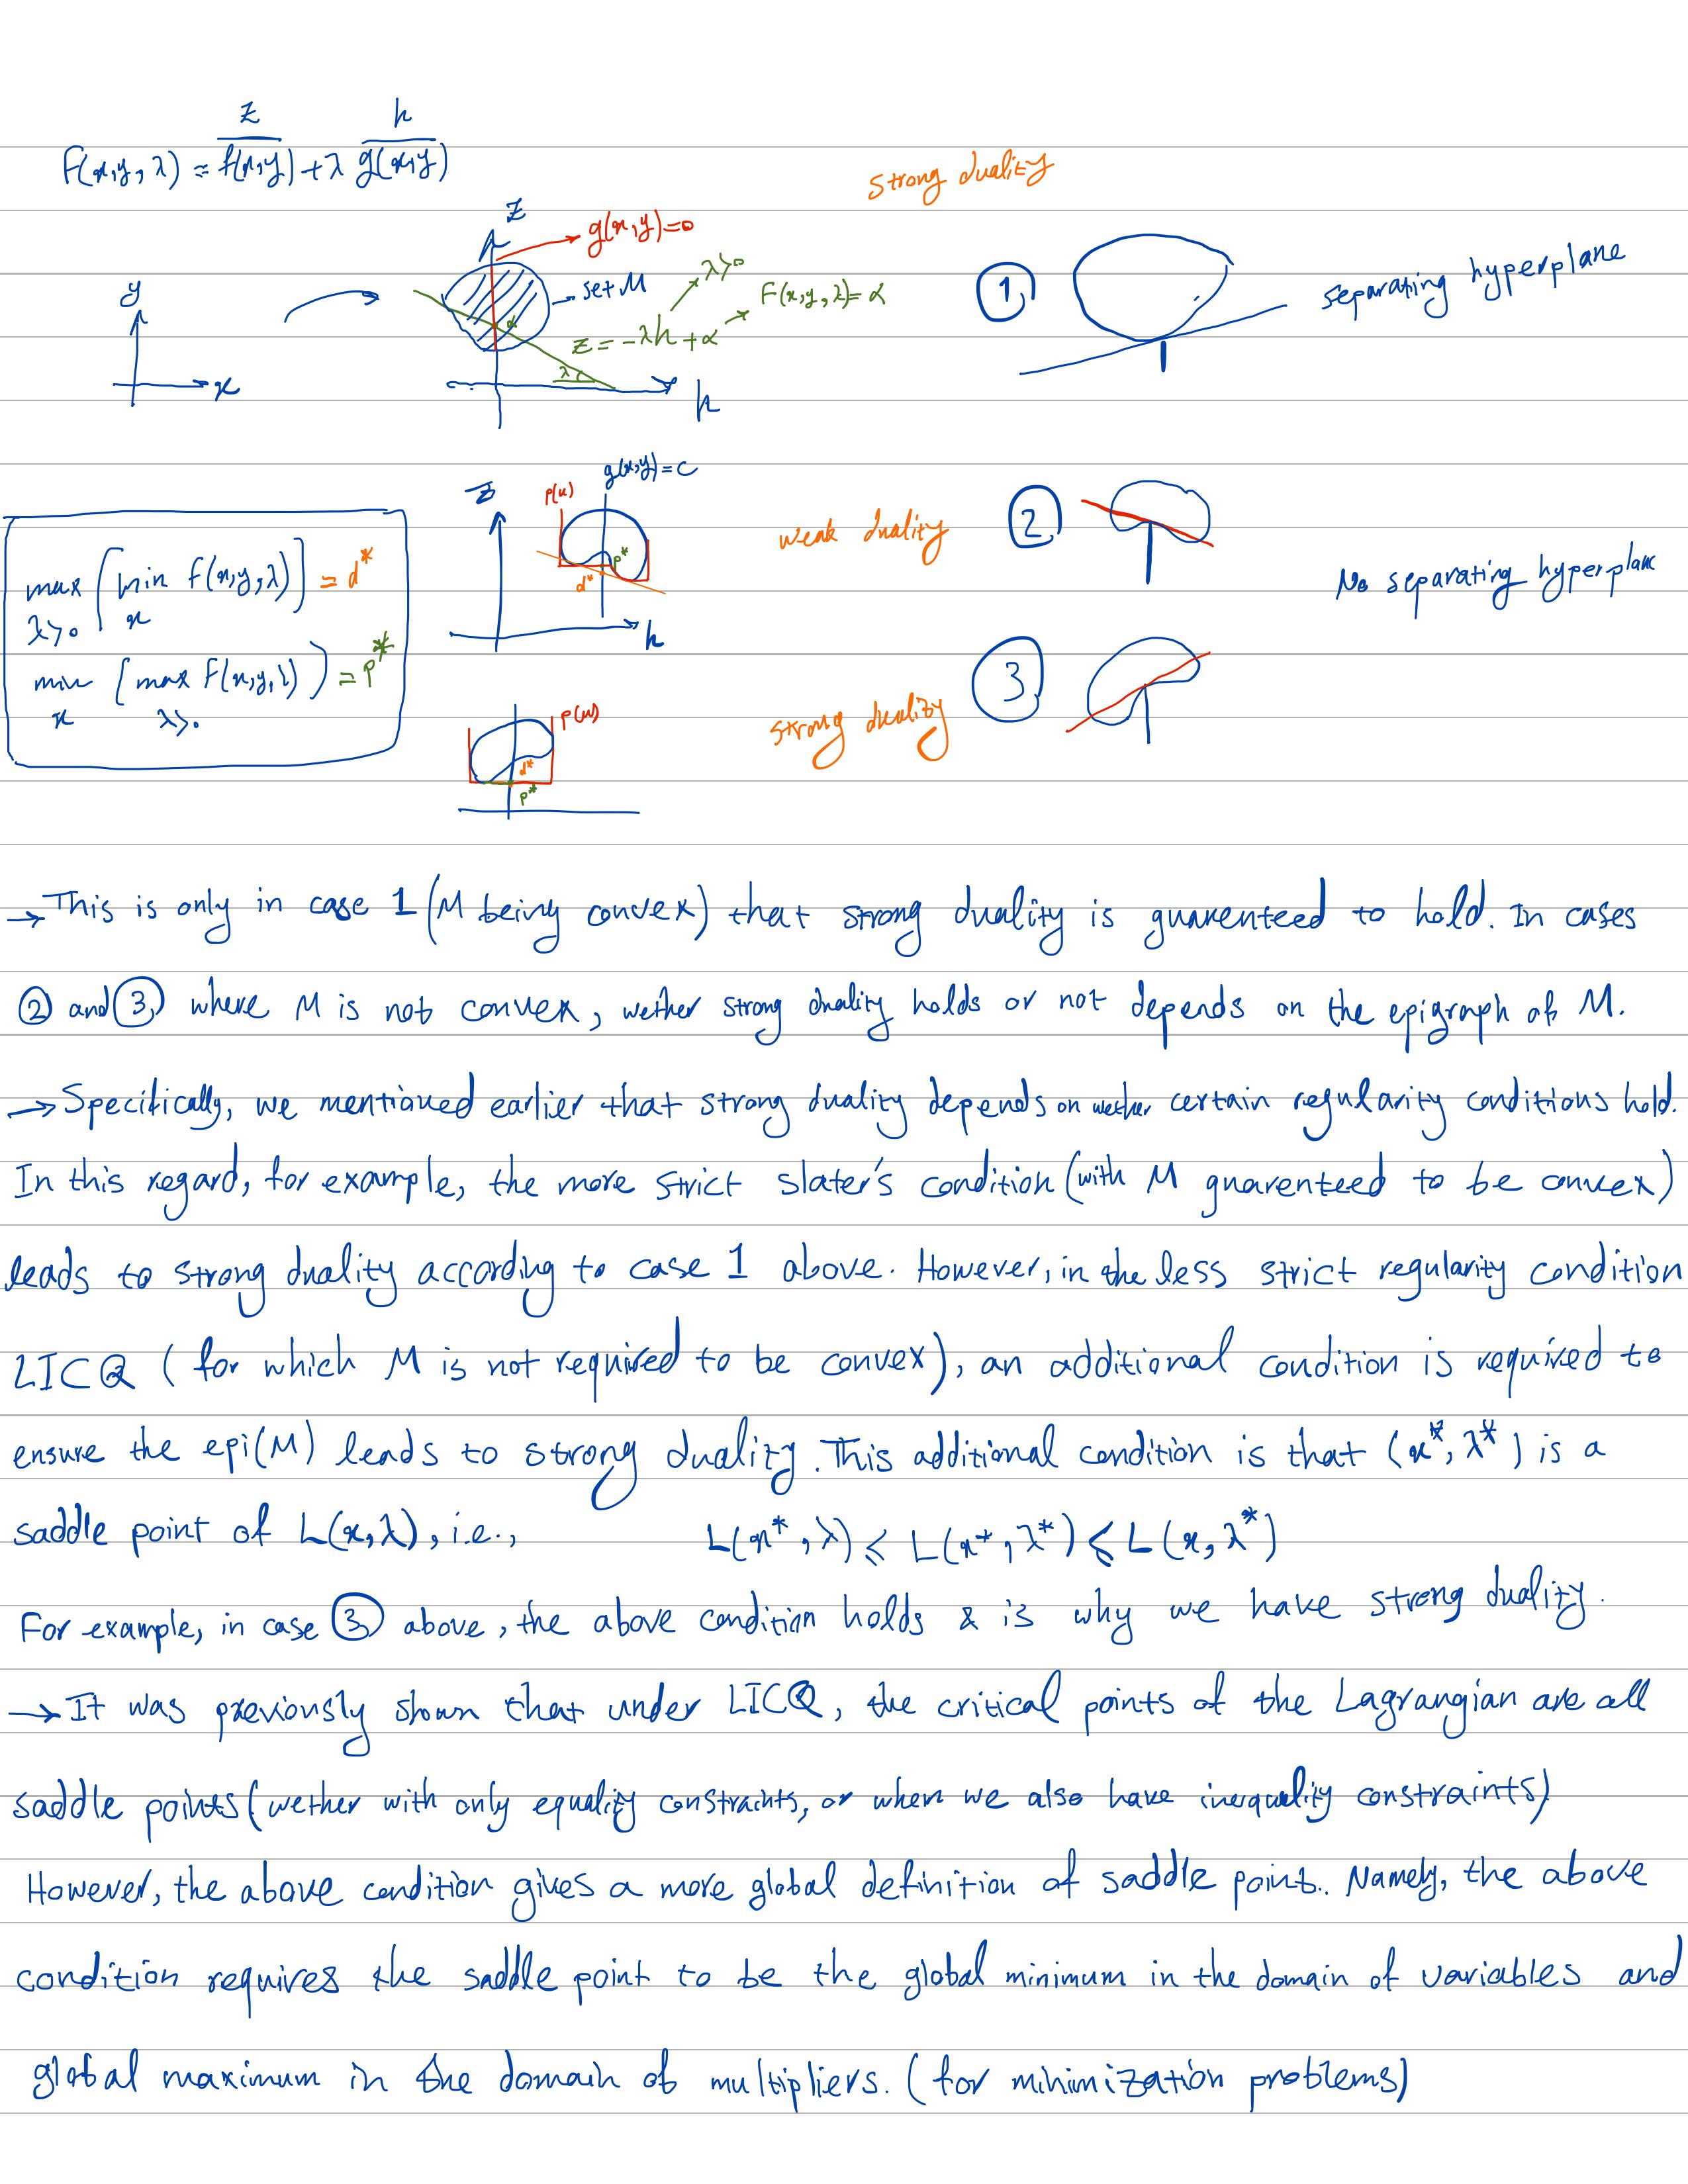 z h
F(x,y,λ) = f(x,y) + λ g(x,y)
strong duality
z
g(x,y)=0
set M
λ>0
F(x,y,λ)= α
z = -λh + α
α
λ
y
x
h
1
separating hyperplane
z
p(u)
g(x,y)=c
p*
d*
h
weak duality
2
No separating hyperplane
max [min F(x,y,λ)] = d*
λ>0 x
min (max F(x,y,λ)) = p*
x λ>0
p(u)
d*
p*
strong duality
3
→ This is only in case 1 (M being convex) that strong duality is guarenteed to hold. In cases
② and ③ where M is not convex, wether strong duality holds or not depends on the epigraph of M.
→ Specifically, we mentioned earlier that strong duality depends on wether certain regularity conditions hold.
In this regard, for example, the more strict slater's condition (with M guarenteed to be convex)
leads to strong duality according to case 1 above. However, in the less strict regularity condition
LICQ (for which M is not required to be convex), an additional condition is required to
ensure the epi(M) leads to strong duality. This additional condition is that (x*, λ*) is a
saddle point of L(x,λ), i.e., L(x*, λ) ≤ L(x*, λ*) ≤ L(x, λ*)
For example, in case ③ above, the above condition holds & is why we have strong duality.
→ It was previously shown that under LICQ, the critical points of the Lagrangian are all
saddle points (wether with only equality constraints, or when we also have inequality constraints)
However, the above condition gives a more global definition of saddle point. Namely, the above
condition requires the saddle point to be the global minimum in the domain of variables and
global maximum in the domain of multipliers. (for minimization problems)